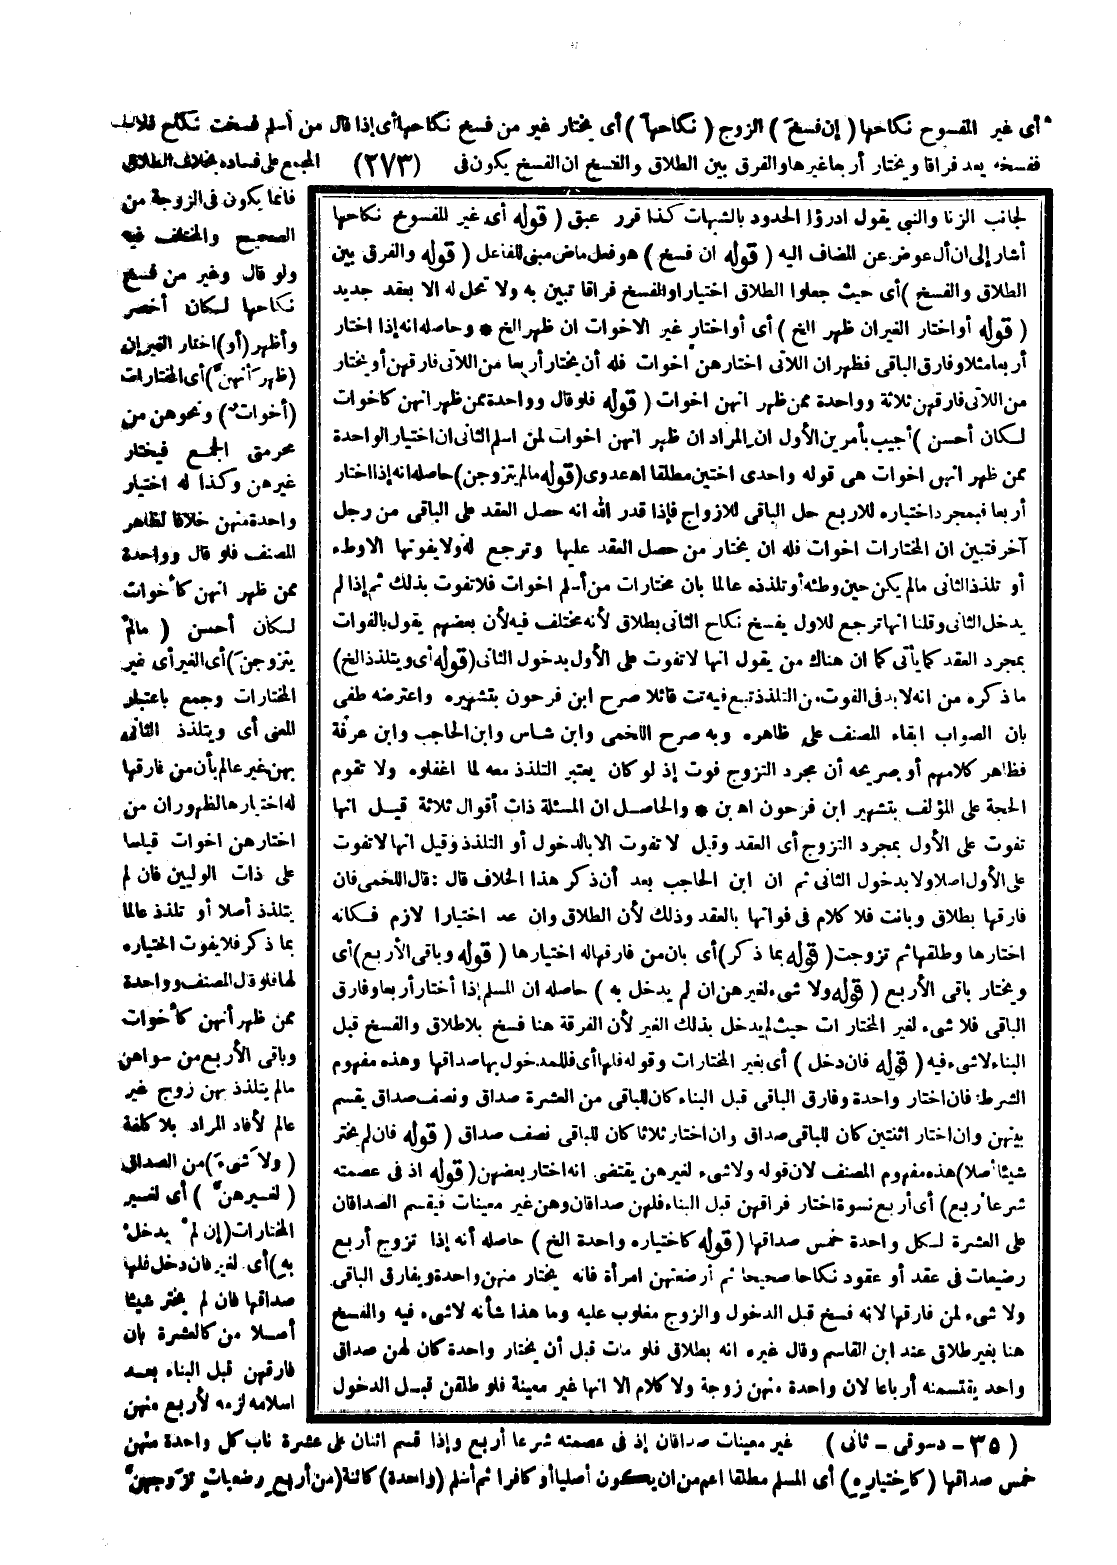 أى غير المفسوح نكاحها ( إن فسخَ ) الزوج ( نكاحها ) أى يختار غير من فسخ نكاحها أى إذا قال من أسلم فسخت نكاح فلانة
ففسخه يعد فراقا ويختار أربعا غيرها والفرق بين الطلاق والفسخ ان الفسخ يكون فى (٢٧٣) المجمع على فساده بخلاف الطلاق
فانما يكون فى الزوجة من
الصحيح والمختلف فيه
ولو قال وغير من فسخ
نكاحها لكان أخصر
وأظهر (أو) اختار الغير إن
(ظهر أنهن) أى المختارات
(أخوات) ونحوهن من
محرمى الجمع فيختار
غيرهن وكذا له اختيار
واحدة منهن خلافا لظاهر
المصنف فلو قال وواحدة
ممن ظهر انهن كأخوات
لكان أحسن ( مالم
يتزوجن) أى الغير أى غير
المختارات وجمع باعتبار
المعنى أى ويتلذذ الثانى
بهن غير عالم بأن من فارقها
له اختيارها لظهور ان من
اختارهن اخوات قياسا
على ذات الوليين فان لم
يتلذذ أصلا أو تلذذ عالما
بما ذكر فلا يفوت اختياره
لها فلو قال المصنف وواحدة
ممن ظهر أنهن كأخوات
وباقى الأربع من سواهن
مالم يتلذذ بهن زوج غير
عالم لأفاد المراد بلا كلفة
( ولا شىءَ) من الصداق
( لغيرهن ) أى لغير
المختارات (إن لم يدخل
به) أى لغير فان دخل فلها
صداقها فان لم يختر شيئا
أصلا من كالعشرة بان
فارقهن قبل البناء بعد
اسلامه لزمه لأربع منهن
لجانب الزنا والنبي يقول ادرؤا الحدود بالشبهات كذا قرر عبق ( قوله أى غير المفسوخ نكاحها
أشار إلى ان أل عوض عن المضاف اليه ( قوله ان فسخ ) هو فعل ماض مبنى للفاعل ( قوله والفرق بين
الطلاق والفسخ ) أى حيث جعلوا الطلاق اختيارا والفسخ فراقا تبين به ولا تحل له الا بعقد جديد
( قوله أو اختار الغير ان ظهر الخ ) أى أو اختار غير الاخوات ان ظهر الخ * وحاصله انه إذا اختار
أربعا مثلا وفارق الباقى فظهر ان اللاتى اختارهن اخوات فله أن يختار أربعا من اللاتى فارقهن أو يختار
من اللاتى فارقهن ثلاثة وواحدة ممن ظهر انهن اخوات ( قوله فلو قال وواحدة ممن ظهر انهن كاخوات
لكان أحسن ) أجيب بأمرين الأول ان المراد ان ظهر انهن اخوات لمن اسلم الثانى ان اختيار الواحدة
ممن ظهر انهن اخوات هى قوله واحدى اختين مطلقا اه عدوى (قوله مالم يتزوجن) حاصله انه إذا اختار
أربعا فبمجرد اختياره للاربع حل الباقى للازواج فإذا قدر الله انه حصل العقد على الباقى من رجل
آخر فتبين ان المختارات اخوات فله ان يختار من حصل العقد عليها وترجع له ولا يفوتها الا وطء
أو تلذذ الثانى مالم يكن حين وطئه أو تلذذه عالما بان مختارات من أسلم اخوات فلا تفوت بذلك ثم إذا لم
يدخل الثانى وقلنا انها ترجع للاول يفسخ نكاح الثانى بطلاق لأنه مختلف فيه لأن بعضهم يقول بالفوات
بمجرد العقد كما يأتى كما ان هناك من يقول انها لا تفوت على الأول بدخول الثانى (قوله أى ويتلذذ الخ)
ما ذكره من انه لا بد فى الفوت من التلذذ تبع فيه تت قائلا صرح ابن فرحون بتشهيره واعترضه طفى
بان الصواب ابقاء المصنف على ظاهره وبه صرح اللخمى وابن شاس وابن الحاجب وابن عرفة
فظاهر كلامهم أو صريحه أن مجرد التزوج فوت إذ لو كان يعتبر التلذذ معه لما اغفلوه ولا تقوم
الحجة على المؤلف بتشهير ابن فرحون اه بن * والحاصل ان المسئلة ذات أقوال ثلاثة قيل انها
تفوت على الأول بمجرد التزوج أى العقد وقيل لا تفوت الا بالدخول أو التلذذ وقيل انها لا تفوت
على الأول اصلا ولا بدخول الثانى ثم ان ابن الحاجب بعد أن ذكر هذا الخلاف قال : قال اللخمى فان
فارقها بطلاق وبانت فلا كلام فى فواتها بالعقد وذلك لأن الطلاق وان عد اختيارا لازم فكانه
اختارها وطلقها ثم تزوجت ( قوله بما ذكر) أى بان من فارقها له اختيارها ( قوله وباقى الأربع) أى
ويختار باقى الأربع ( قوله ولا شىء لغيرهن ان لم يدخل به ) حاصله ان المسلم إذا أختار أربعا وفارق
الباقى فلا شىء لغير المختارات حيث لم يدخل بذلك الغير لأن الفرقة هنا فسخ بلا طلاق والفسخ قبل
البناء لا شىء فيه ( قوله فان دخل ) أى بغير المختارات وقوله فلها أى فللمدخول بها صداقها وهذه مفهوم
الشرط فان اختار واحدة وفارق الباقى قبل البناء كان للباقى من العشرة صداق ونصف صداق يقسم
بينهن وان اختار اثنتين كان للباقى صداق وان اختار ثلاثا كان للباقى نصف صداق ( قوله فان لم يختر
شيئا أصلا) هذه مفهوم المصنف لان قوله ولا شىء لغيرهن يقتضى انه اختار بعضهن ( قوله اذ فى عصمته
شرعا أربع) أى أربع نسوة اختار فراقهن قبل البناء فلهن صداقان وهن غير معينات فيقسم الصداقان
على العشرة لكل واحدة خمس صداقها ( قوله كاختياره واحدة الخ ) حاصله أنه إذا تزوج أربع
رضيعات فى عقد أو عقود نكاحا صحيحا ثم أرضعتهن امرأة فانه يختار منهن واحدة ويفارق الباقى
ولا شىء لمن فارقها لانه فسخ قبل الدخول والزوج مغلوب عليه وما هذا شأنه لا شىء فيه والفسخ
هنا بغير طلاق عند ابن القاسم وقال غيره انه بطلاق فلو مات قبل أن يختار واحدة كان لهن صداق
واحد يقتسمنه أرباعا لان واحدة منهن زوجة ولا كلام الا انها غير معينة فلو طلقن قبل الدخول
( ٣٥ – دسوقى – ثانى ) غير معينات صداقان إذ فى عصمته شرعا أربع وإذا قسم اثنان على عشرة ناب كل واحدة منهن
خمس صداقها ( كاختياره ) أى المسلم مطلقا اعم من ان يكون أصليا أو كافرا ثم أسلم ( واحدة) كائنة (من أربع رضيعات تزوجهن